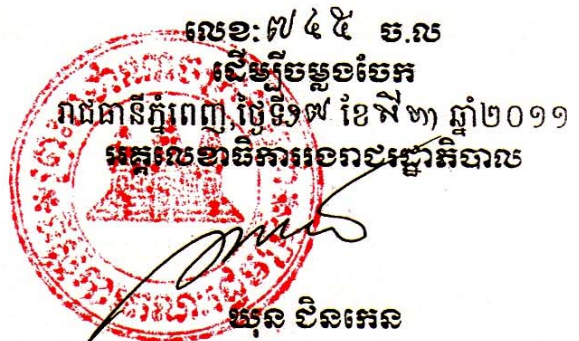 លេខ: ៧៤៥ ច.ល
ដើម្បីចម្លងចែក
រាជធានីភ្នំពេញ, ថ្ងៃទី១៧ ខែសីហា ឆ្នាំ២០១១
អគ្គលេខាធិការរងរាជរដ្ឋាភិបាល
ឃុន ជិនកេន